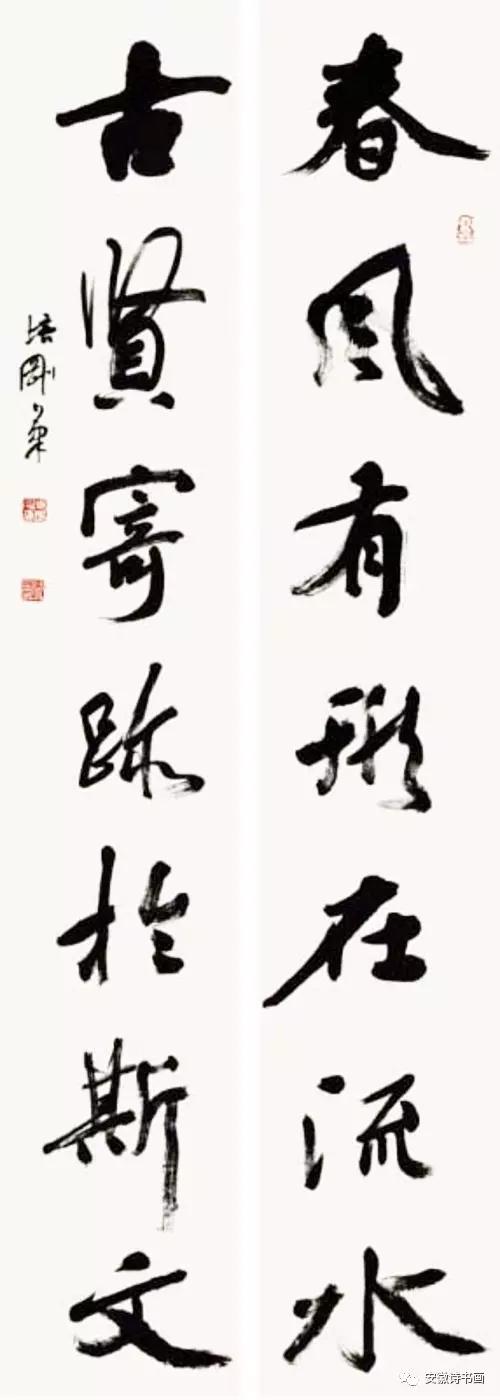 春风有形在流水
古贤寄跡於斯文
培刚
安徽诗书画